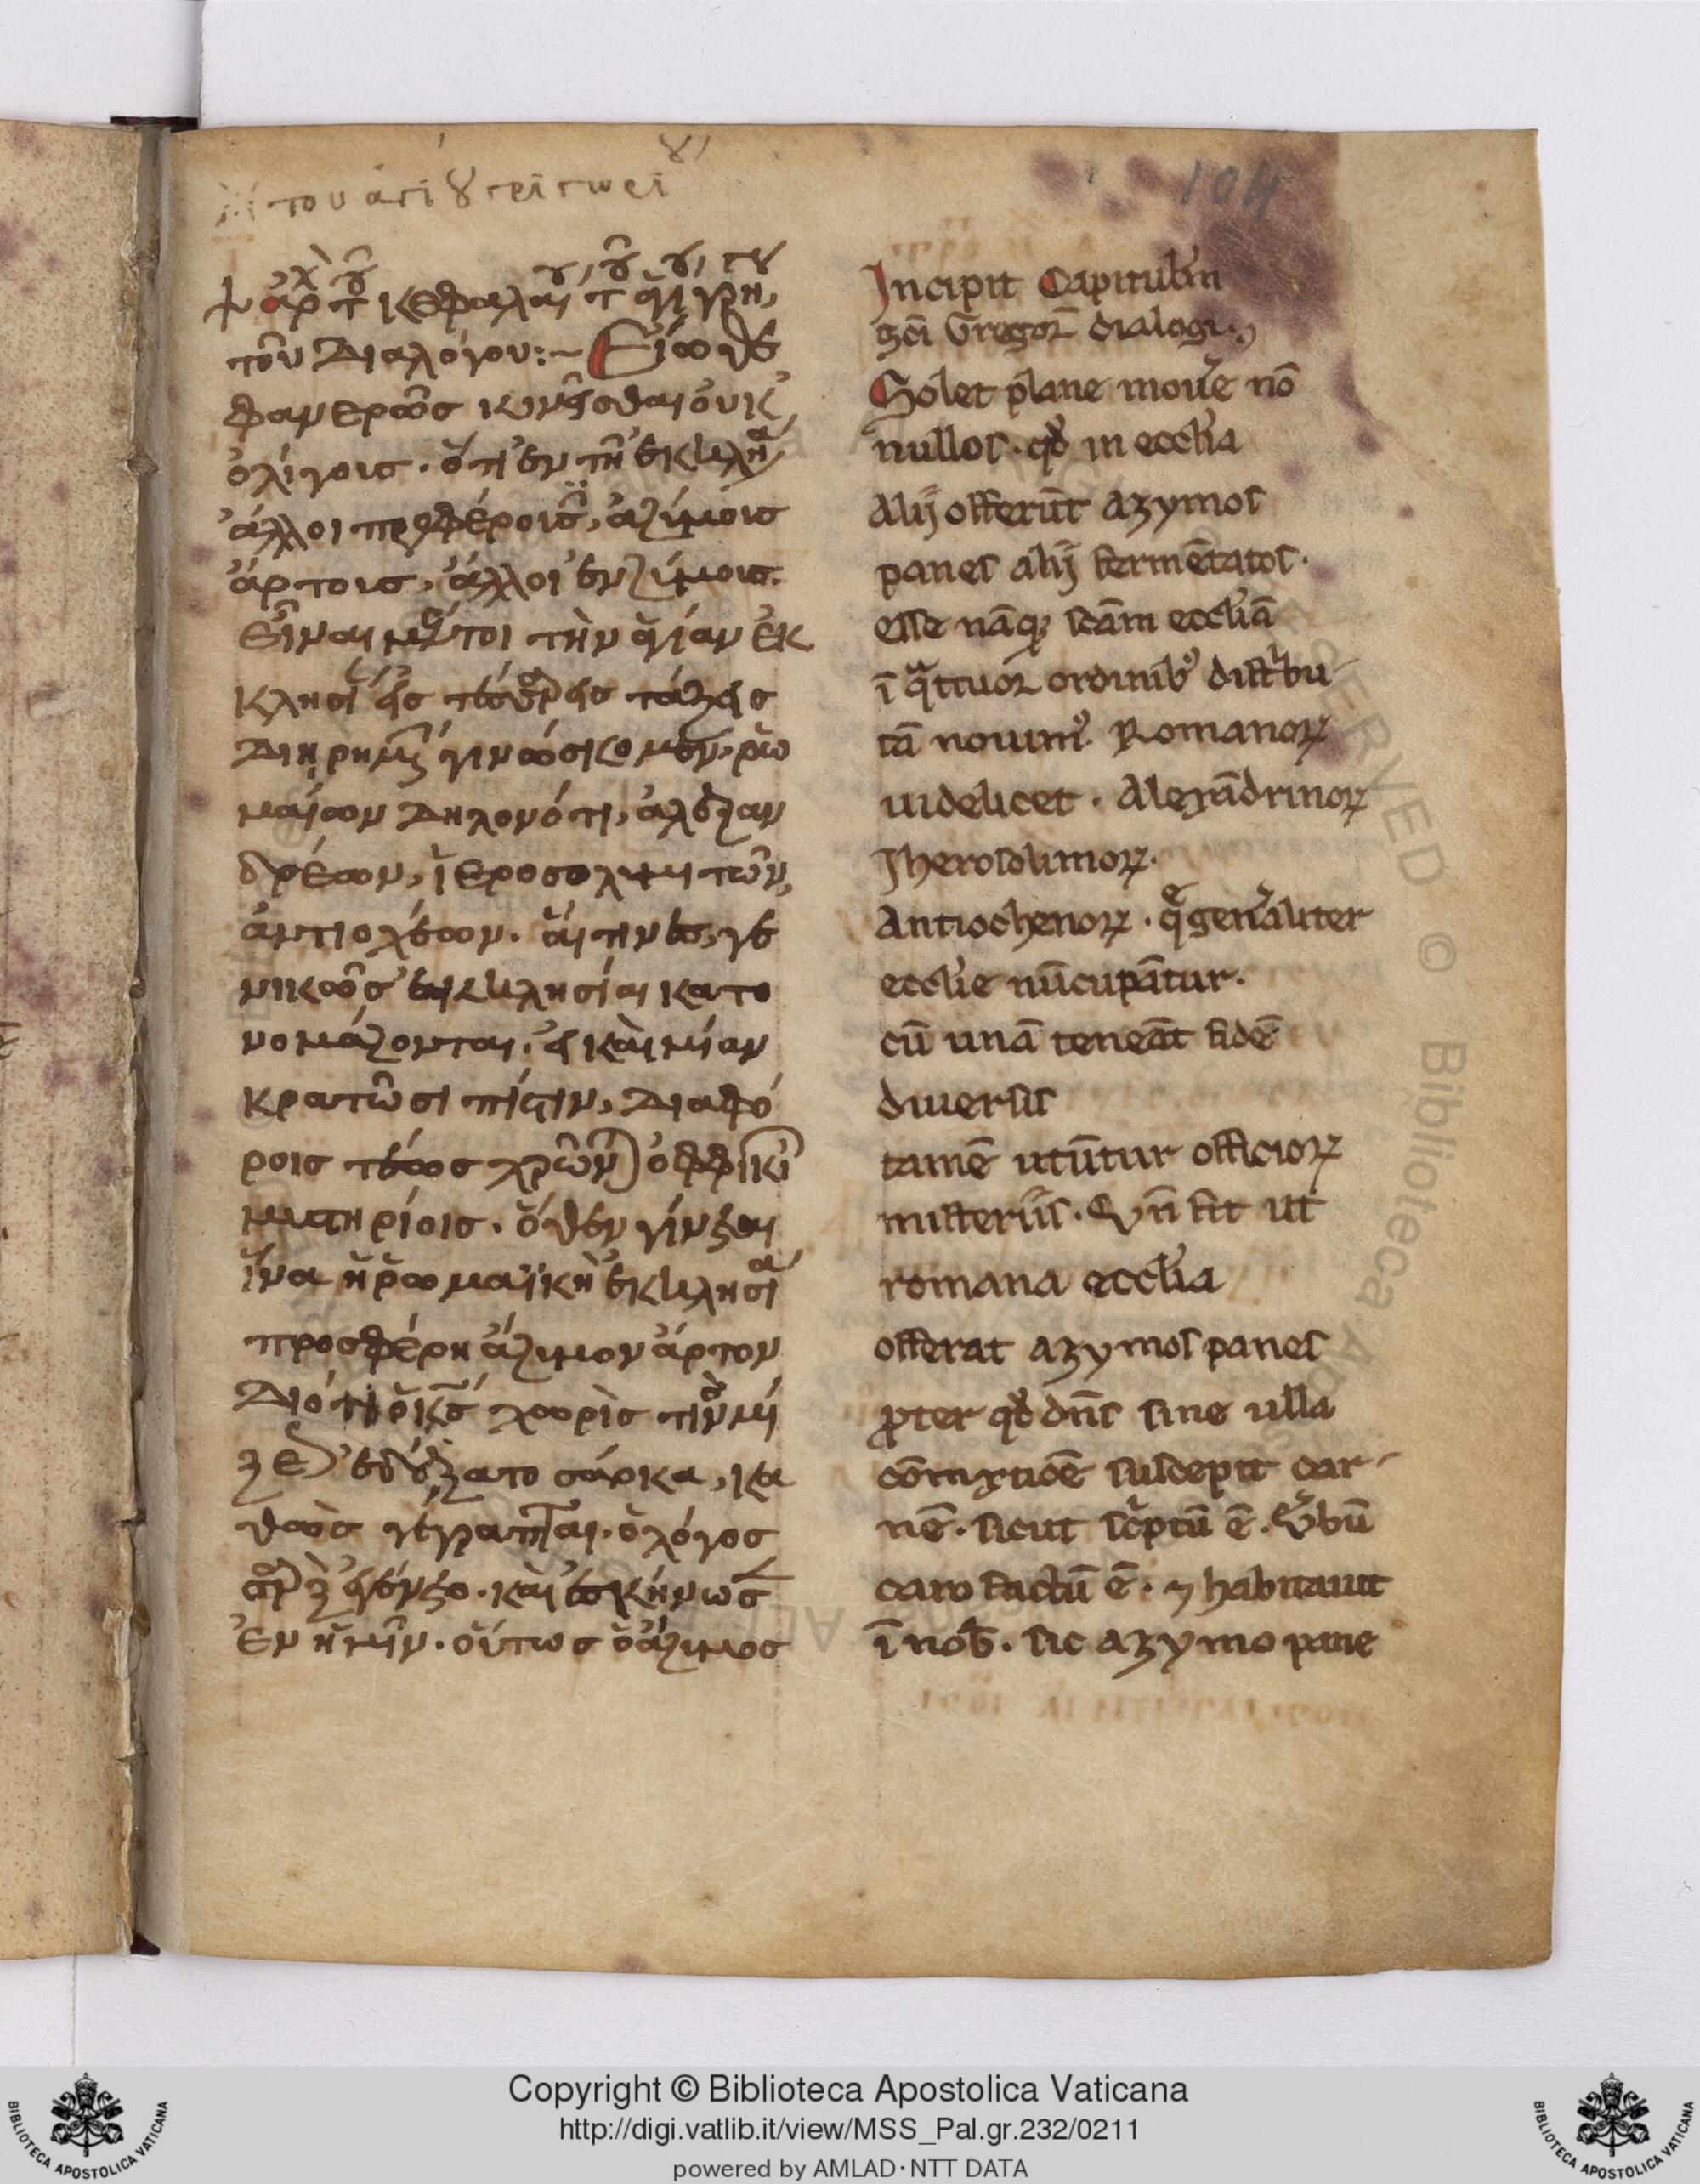 104
ἀρχ τοῦ κεφαλαίου τοῦ ἁγίου γρη,
τοῦ Διαλόγου:~ Εἴωθε
φανερῶς κινεῖσθαι οὐκ
ὀλίγοις. ὅτι ἐν τῆ ἐκκλη
ἄλλοι προσφέροισιν, ἀζύμοις
ἄρτοις, ἄλλοι ἐνζύμοις.
Εἶναι μέντοι τὴν ἁγίαν ἐκ
κλησίαν εἰς τέσσαρεις τάξεις
Διηρημένην γινώσκομεν, ρω
μαίων Δηλονότι, ἀλεξαν
δρέων, ἱεροσολυμιτῶν,
ἀντιοχέων. αἵτινες, γε
νικῶς ἐκκλησίαι κατο
νομάζονται. εἰ καὶ μίαν
κρατῶσι πίστιν, Διαφό
ροις τέως χρῶν ὀφφικί
μυστηρίοις. ὅθεν γίνεται
ἵνα ἡ ρωμαϊκὴ ἐκκλησία
προσφέρη ἄζυμον ἄρτον
Διότι ὁ κς χωρὶς τινὸς μί
ξε ἐδέξατο σάρκα, κα
θὼς γέγραπται. ὁ λόγος
σὰρξ ἐγένετο. καὶ ἐσκήνωσ
Ἐν ἡμῖν. οὕτως ὁ ἄζυμος
Incipit Capitulum
sci Gregor dialogi.
Solet plane mouere nō
nullos. qd in ecclia
Alij offerūt azymos
panes alij fermētatos.
esse nāq; scām eccliā
ī qattuor ordinib' distribu
tā nouim'. Romanorꝝ
uidelicet. Alexādrinorꝝ
Jherosolimorꝝ.
Antiochenorꝝ. qe generaliter
ecclie nūcupātur.
cū unā teneāt fidē
diuersis
tamē utūtur officiorꝝ
misteriis. Vn fit ut
romana ecclia
offerat azymos panes
ꝓpter qd dns sine ulla
cōmixtiōe suscepit car
nē. sicut scptū ē. Verbū
caro factū ē. ⁊ habitauit
ī nob. sic azymo pane
Copyright © Biblioteca Apostolica Vaticana
http://digi.vatlib.it/view/MSS_Pal.gr.232/0211
powered by AMLAD·NTT DATA
BIBLIOTECA APOSTOLICA VATICANA
BIBLIOTECA APOSTOLICA VATICANA